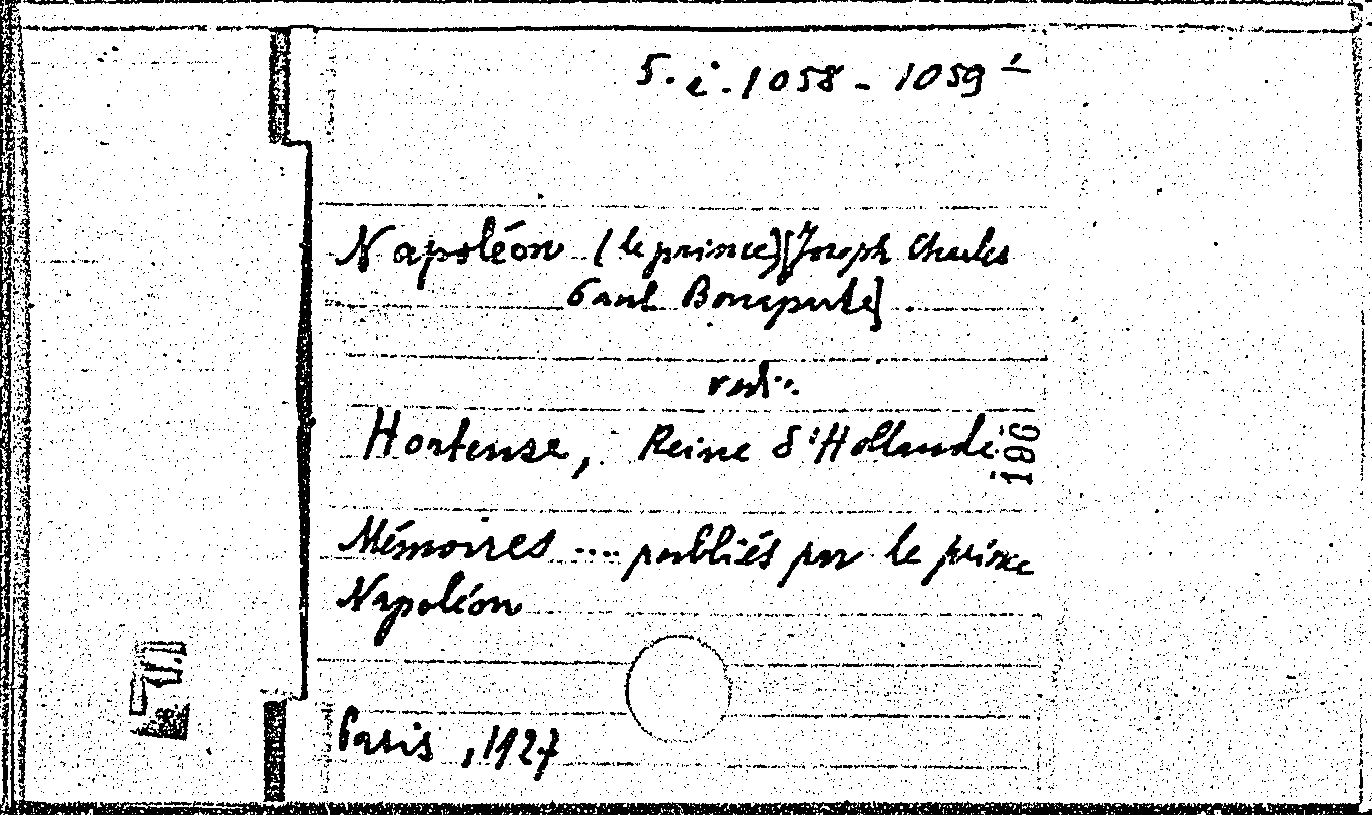 5. i. 1058 - 1059
Napoléon (le prince) [Joseph Charles
Paul Bonaparte].
Hortense, Reine d'Hollande
196
Mémoires .... publiés par le prince
Napoléon
Paris, 1927